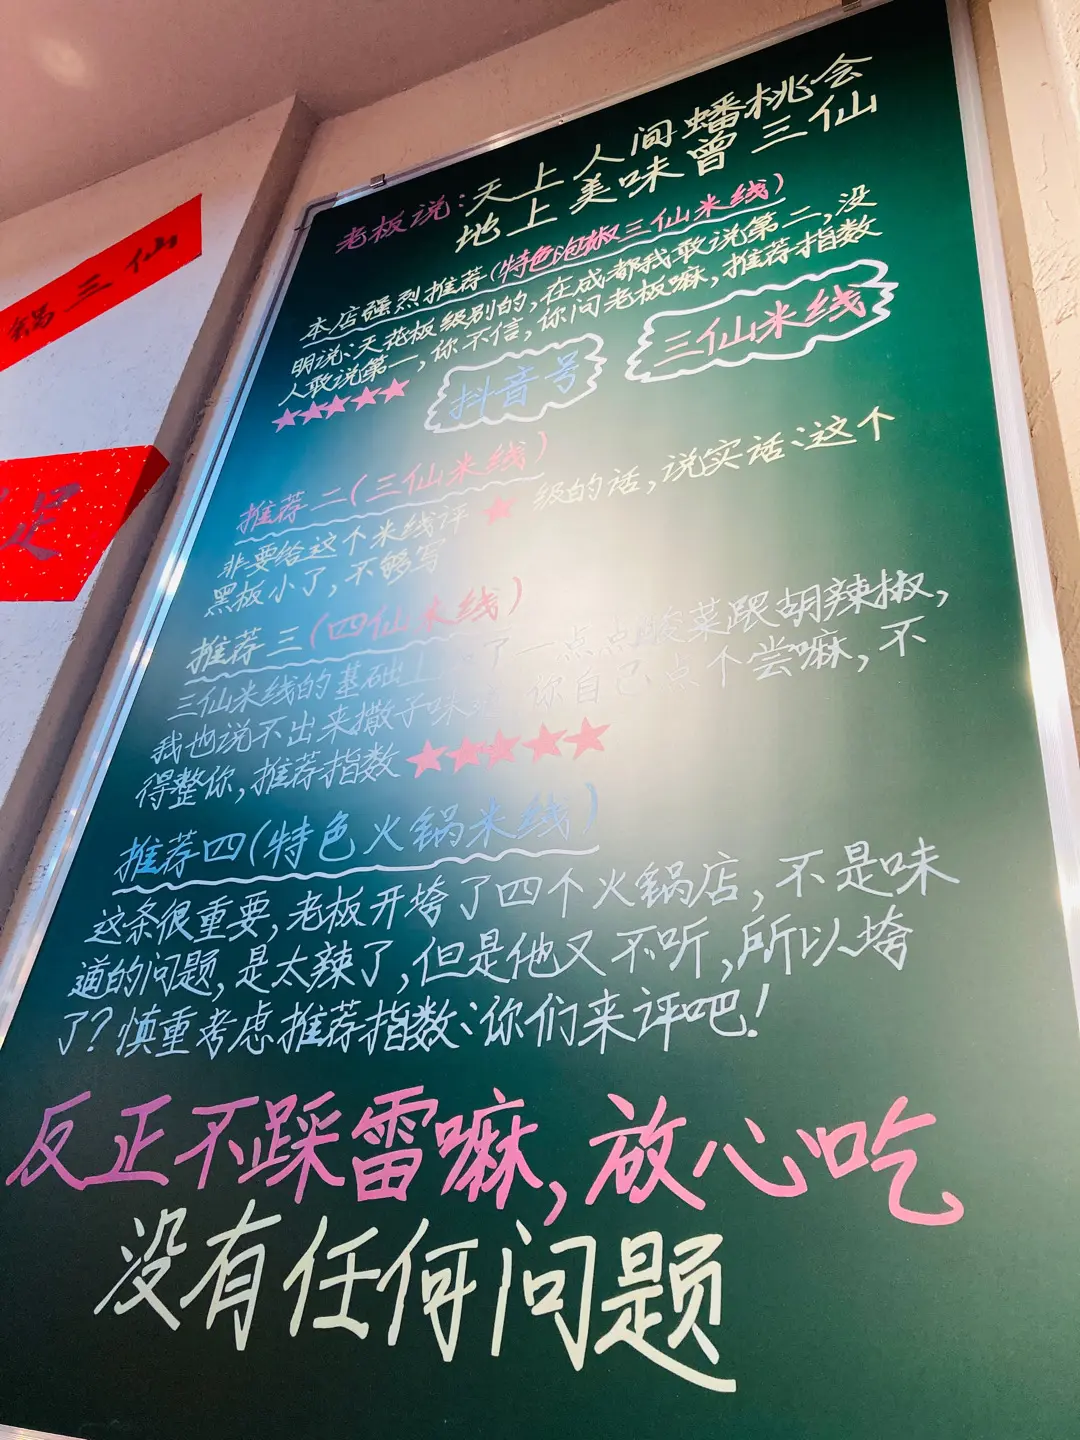 老板说:天上人间蟠桃会
地上美味曾三仙
本店强烈推荐(特色泡椒三仙米线)
明说:天花板级别的,在成都我敢说第二,没
人敢说第一,你不信,你问老板嘛,推荐指数
★★★★★
抖音号
三仙米线
推荐二(三仙米线)
非要给这个米线评★级的话,说实话:这个
黑板小了,不够写
推荐三(四仙米线)
三仙米线的基础上 了一点点酸菜跟胡辣椒,
我也说不出来撒子味 你自己点个尝嘛,不
得整你,推荐指数★★★★★
推荐四(特色火锅米线)
这条很重要,老板开垮了四个火锅店,不是味
道的问题,是太辣了,但是他又不听,所以垮
了?慎重考虑推荐指数:你们来评吧!
反正不踩雷嘛,放心吃
没有任何问题
锅三仙